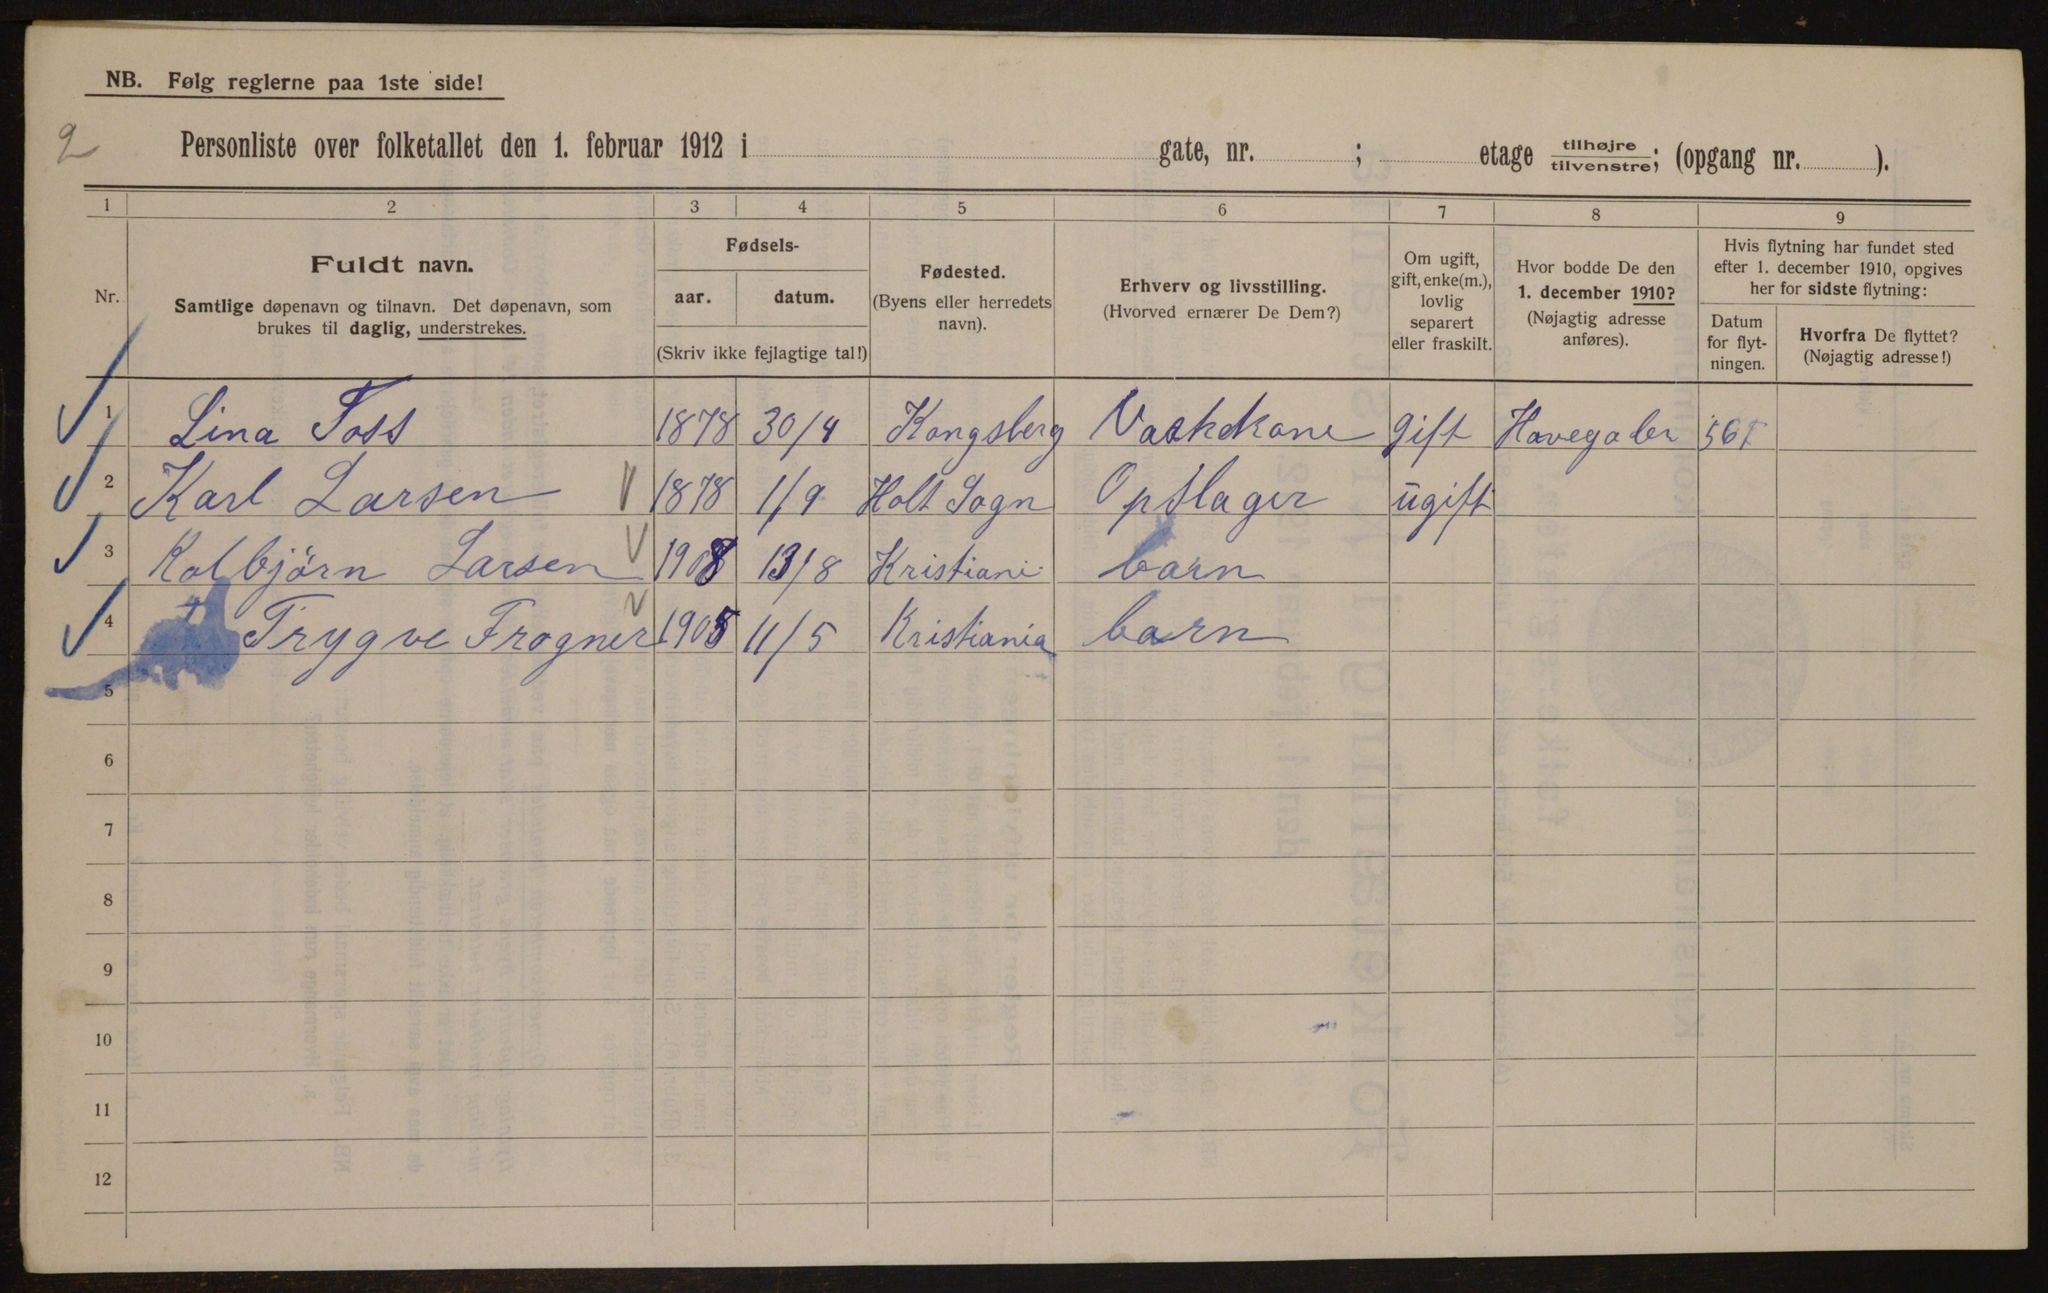 NB. Følg reglerne paa 1ste side!
2
Personliste over folketallet den 1. februar 1912 i gate, nr. ; etage tilhøjre/tilvenstre; (opgang nr. ).
1 2 3 4 5 6 7 8 9
Nr.
Fuldt navn.
Samtlige døpenavn og tilnavn. Det døpenavn, som
brukes til daglig, understrekes.
Fødsels-
aar. datum.
(Skriv ikke fejlagtige tal!)
Fødested.
(Byens eller herredets
navn).
Erhverv og livsstilling.
(Hvorved ernærer De Dem?)
Om ugift,
gift, enke(m.),
lovlig
separert
eller fraskilt.
Hvor bodde De den
1. december 1910?
(Nøjagtig adresse
anføres).
Hvis flytning har fundet sted
efter 1. december 1910, opgives
her for sidste flytning:
Datum
for flyt-
ningen.
Hvorfra De flyttet?
(Nøjagtig adresse!)
1 Lina Foss 1878 30/4 Kongsberg Vaskekone gift Havegaber
2 Karl Larsen 1878 1/9 Holt Sogn Opslager ugift
3 Kolbjörn Larsen 1908 13/8 Kristiani barn
4 Trygve Frogner 1905 11/5 Kristiania barn
5
6
7
8
9
10
11
12